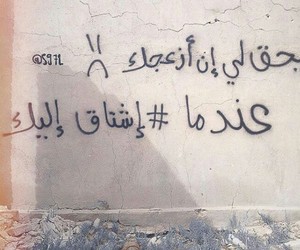 يحق لي إن أزعجك @S97L
عندما #إشتاق إليك